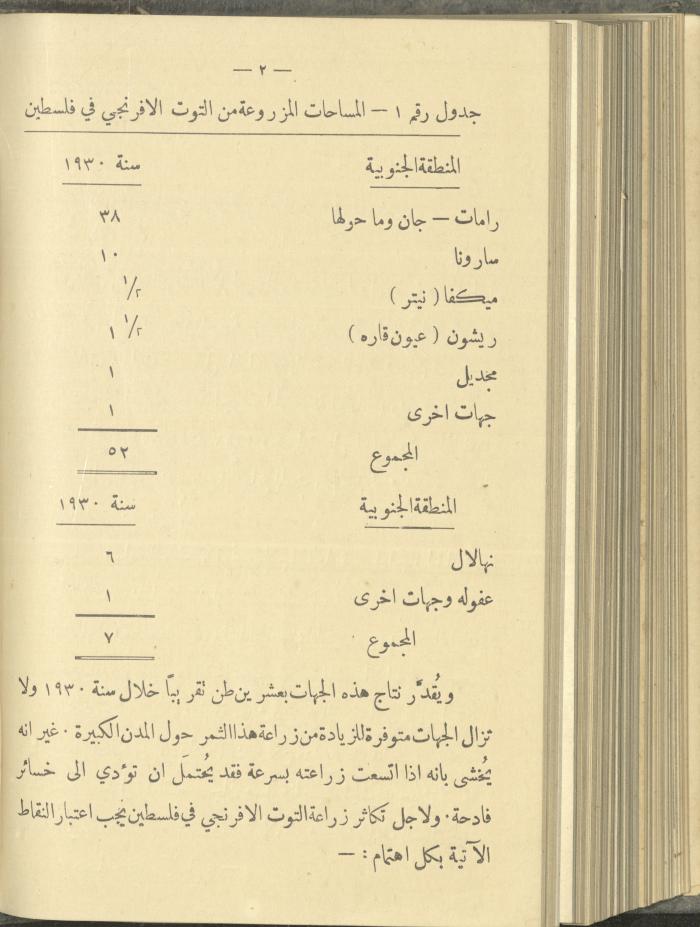 — ٢ —
جدول رقم ١ — المساحات المزروعة من التوت الافرنجي في فلسطين
المنطقة الجنوبية سنة ١٩٣٠
رامات — جان وما حولها ٣٨
سارونا ١٠
ميكفا ( نيتر ) ١/٢
ريشون ( عيون قاره ) ١ ١/٢
مجديل ١
جهات اخرى ١
المجموع ٥٢
المنطقة الجنوبية سنة ١٩٣٠
نهالال ٦
عفوله وجهات اخرى ١
المجموع ٧
ويُقدَّر نتاج هذه الجهات بعشرين طن تقريبًا خلال سنة ١٩٣٠ ولا
تزال الجهات متوفرة للزيادة من زراعة هذا الثمر حول المدن الكبيرة . غير انه
يُخشى بانه اذا اتسعت زراعته بسرعة فقد يُحتملَ ان تؤدي الى خسائر
فادحة . ولاجل تكاثر زراعة التوت الافرنجي في فلسطين يجب اعتبار النقاط
الآتية بكل اهتمام : —